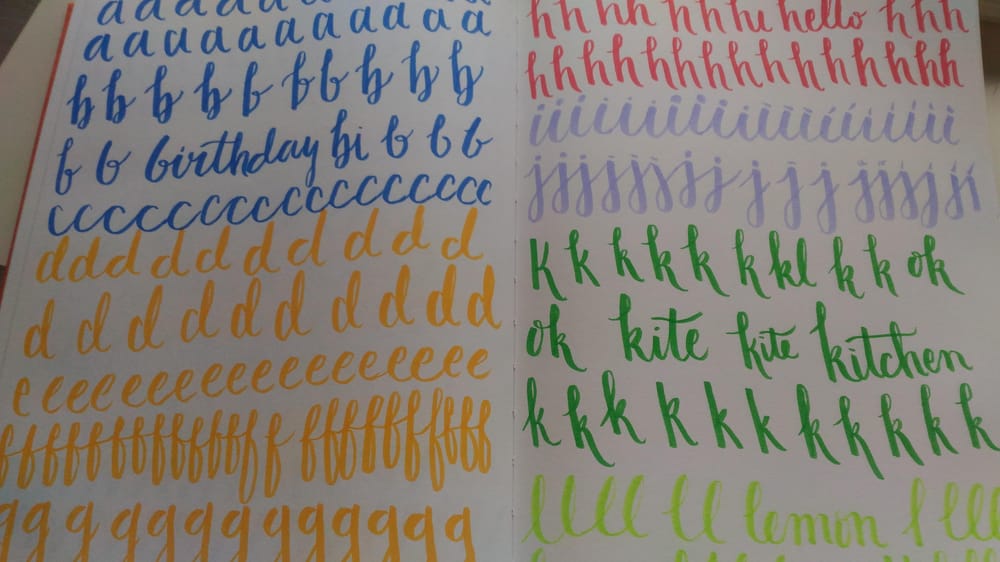 a a a a a a a a a a a
a a a a a a a a a a a
b b b b b b b b b b b
b b birthday bi b b b
c c c c c c c c c c c c c c c c c
d d d d d d d d d d d
d d d d d d d d d d
e e e e e e e e e e e e e e e e e
f f f f f f f f f f f f f f f f f f f f f f
g g g g g g g g g g g g
h h h h h h h hi hello h h h
h h h h h h h h h h h h h h h
i i i i i i i i i i i i i i i i i
j j j j j j j j j j j j j j j j
K k k k k k kl k k ok
ok kite kite kitchen
k k k k k k k k k k k
l l l l l l lemon l l l l